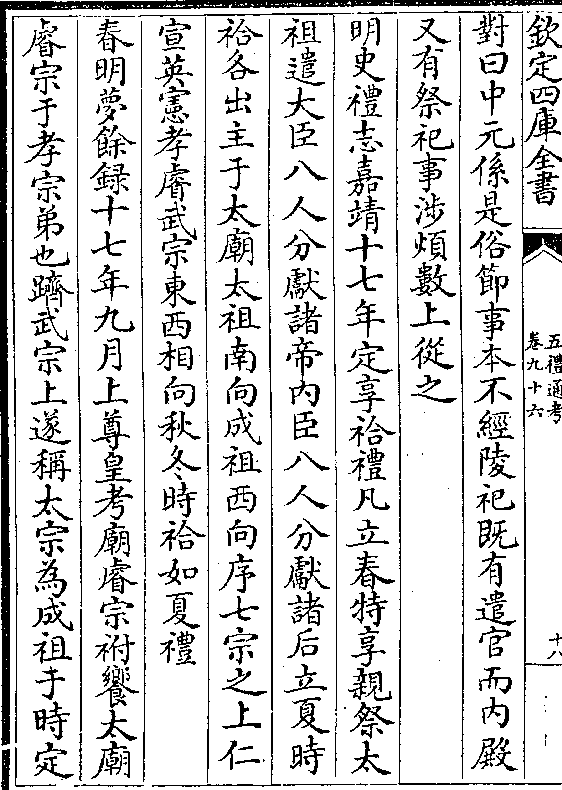 欽定四庫全書
五禮通考
卷九十六
十八
對曰中元係是俗節事本不經陵祀既有遣官而内殿
又有祭祀事渉煩數上從之
明史禮志嘉靖十七年定享祫禮凡立春特享親祭太
祖遣大臣八人分獻諸帝内臣八人分獻諸后立夏時
祫各出主于太廟太祖南向成祖西向序七宗之上仁
宣英憲孝睿武宗東西相向秋冬時祫如夏禮
春明夢餘録十七年九月上尊皇考廟睿宗祔饗太廟
睿宗于孝宗弟也躋武宗上遂稱太宗為成祖于時定